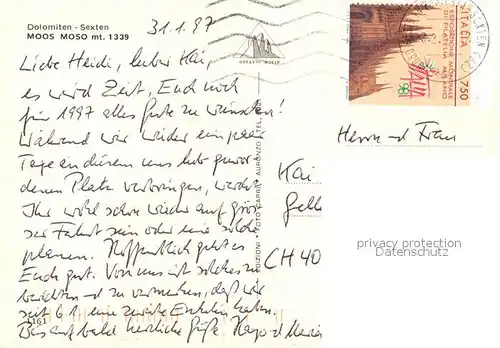 Dolomiten - Sexten
MOOS MOSO mt. 1339
31.1.97
Liebe Heidi, lieber Kai,
es wird Zeit, Euch noch
für 1997 alles Gute zu wünschen!
Während wir wieder ein paar
Tage an diesem uns lieb gewor-
denen Platz verbringen, werdet
Ihr wohl schon wieder auf große
Fahrt sein oder eine solche
planen. Hoffentlich geht es
Euch gut. Von uns ist schönes zu
berichten zu vermerken, daß wir
seit 6.1. eine zweite Enkelin haben.
Bis auf bald herzliche Grüße
1161
OTTAVIO MOLIN
ESPOSIZIONE MONDIALE
DI FILATELIA MILANO
ITALIA
98
750
Herrn u Frau
Kai
CH 40
privacy protection
Datenschutz